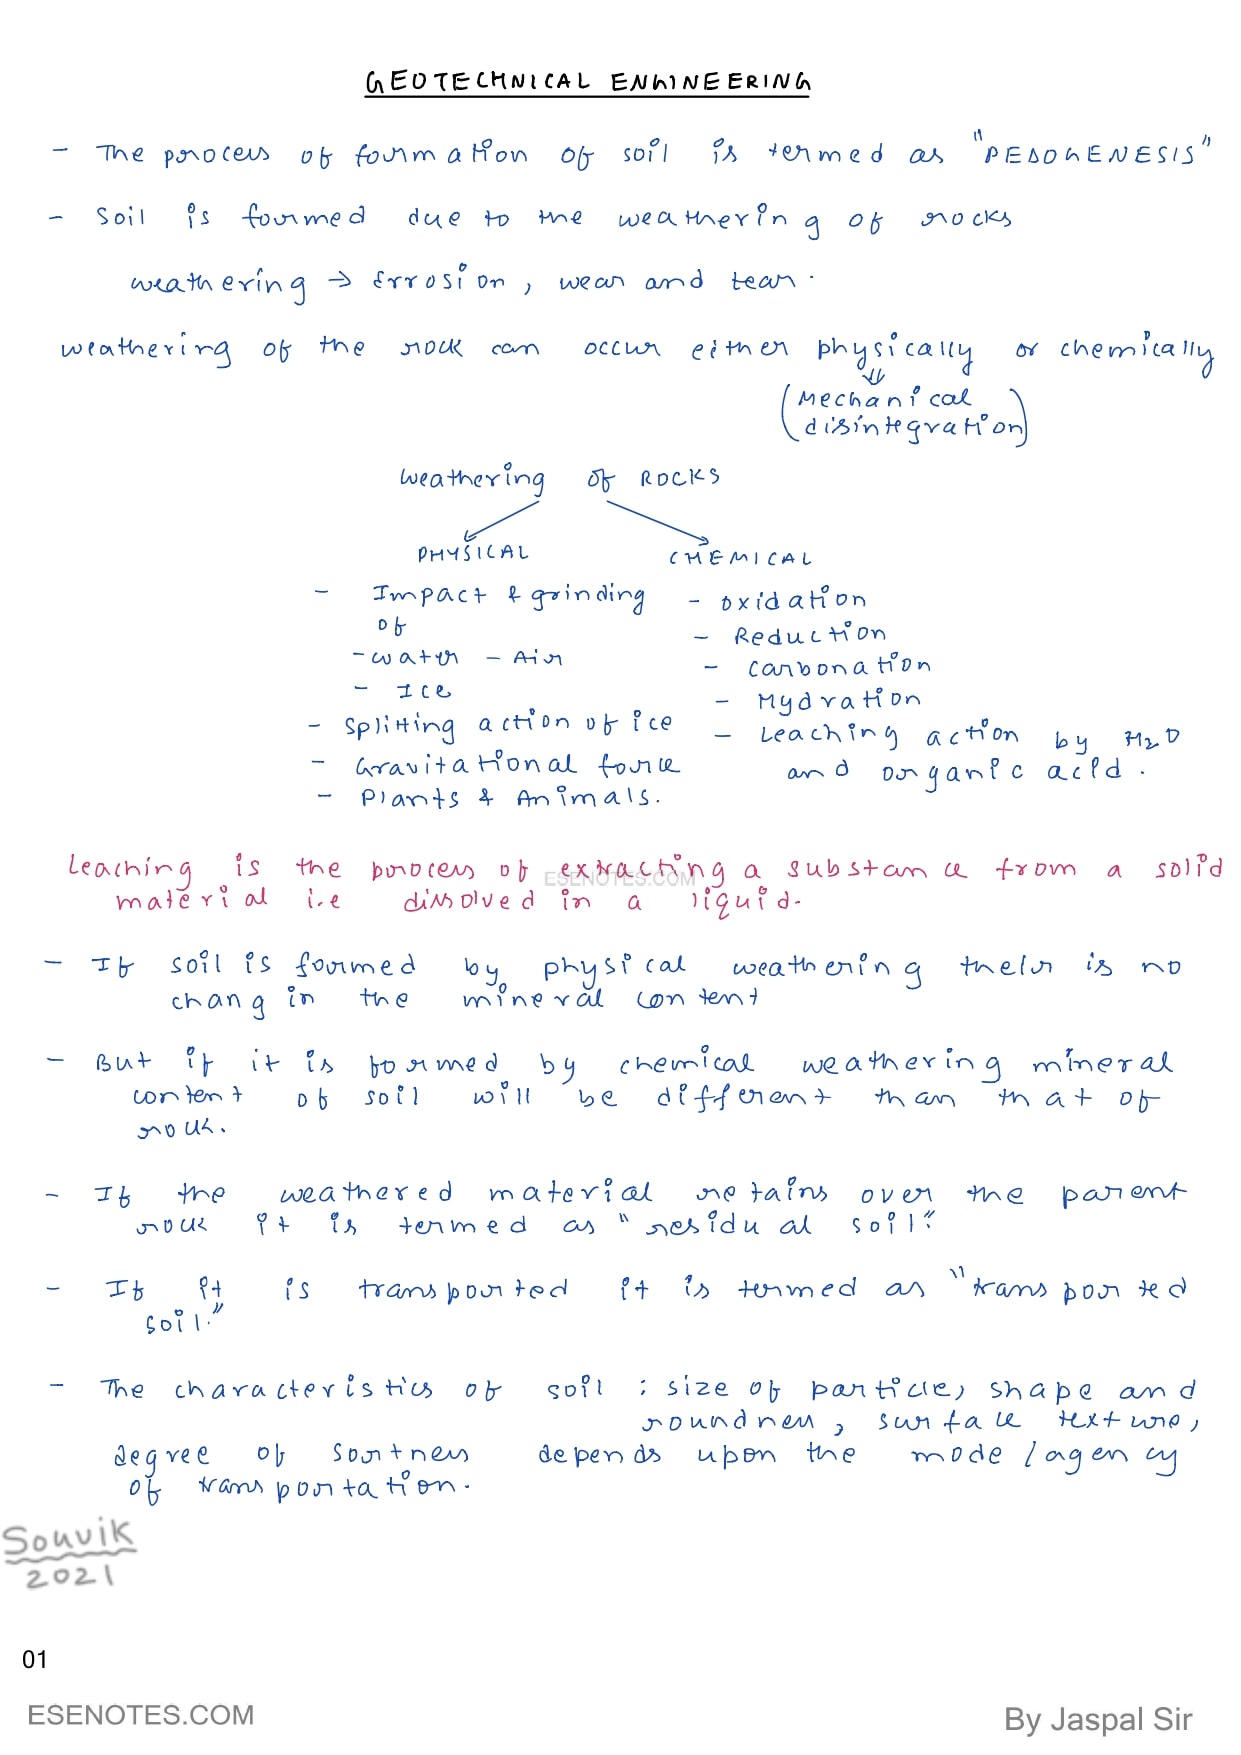 GEOTECHNICAL ENGINEERING
- The process of formation of soil is termed as "PEDOGENESIS"
- Soil is formed due to the weathering of rocks
weathering → Errosion, wear and tear.
weathering of the rock can occur either physically or chemically
⇓
(Mechanical
disintegration)
Weathering of ROCKS
PHYSICAL
CHEMICAL
- Impact & grinding
of
- water - Air
- Ice
- Splitting action of ice
- Gravitational force
- Plants & Animals.
- Oxidation
- Reduction
- Carbonation
- Hydration
- Leaching action by H2O
and organic acid.
Leaching is the process of extracting a substance from a solid
material i.e dissolved in a liquid.
ESENOTES.COM
- If soil is formed by physical weathering their is no
chang in the mineral content
- But if it is formed by chemical weathering mineral
content of soil will be different than that of
rock.
- If the weathered material retains over the parent
rock it is termed as "residual soil."
- If it is transported it is termed as "transported
soil."
- The characteristics of soil : size of particle, shape and
roundness, surface texture,
degree of sortness depends upon the mode/agency
of transportation.
Souvik
2021
01
ESENOTES.COM
By Jaspal Sir